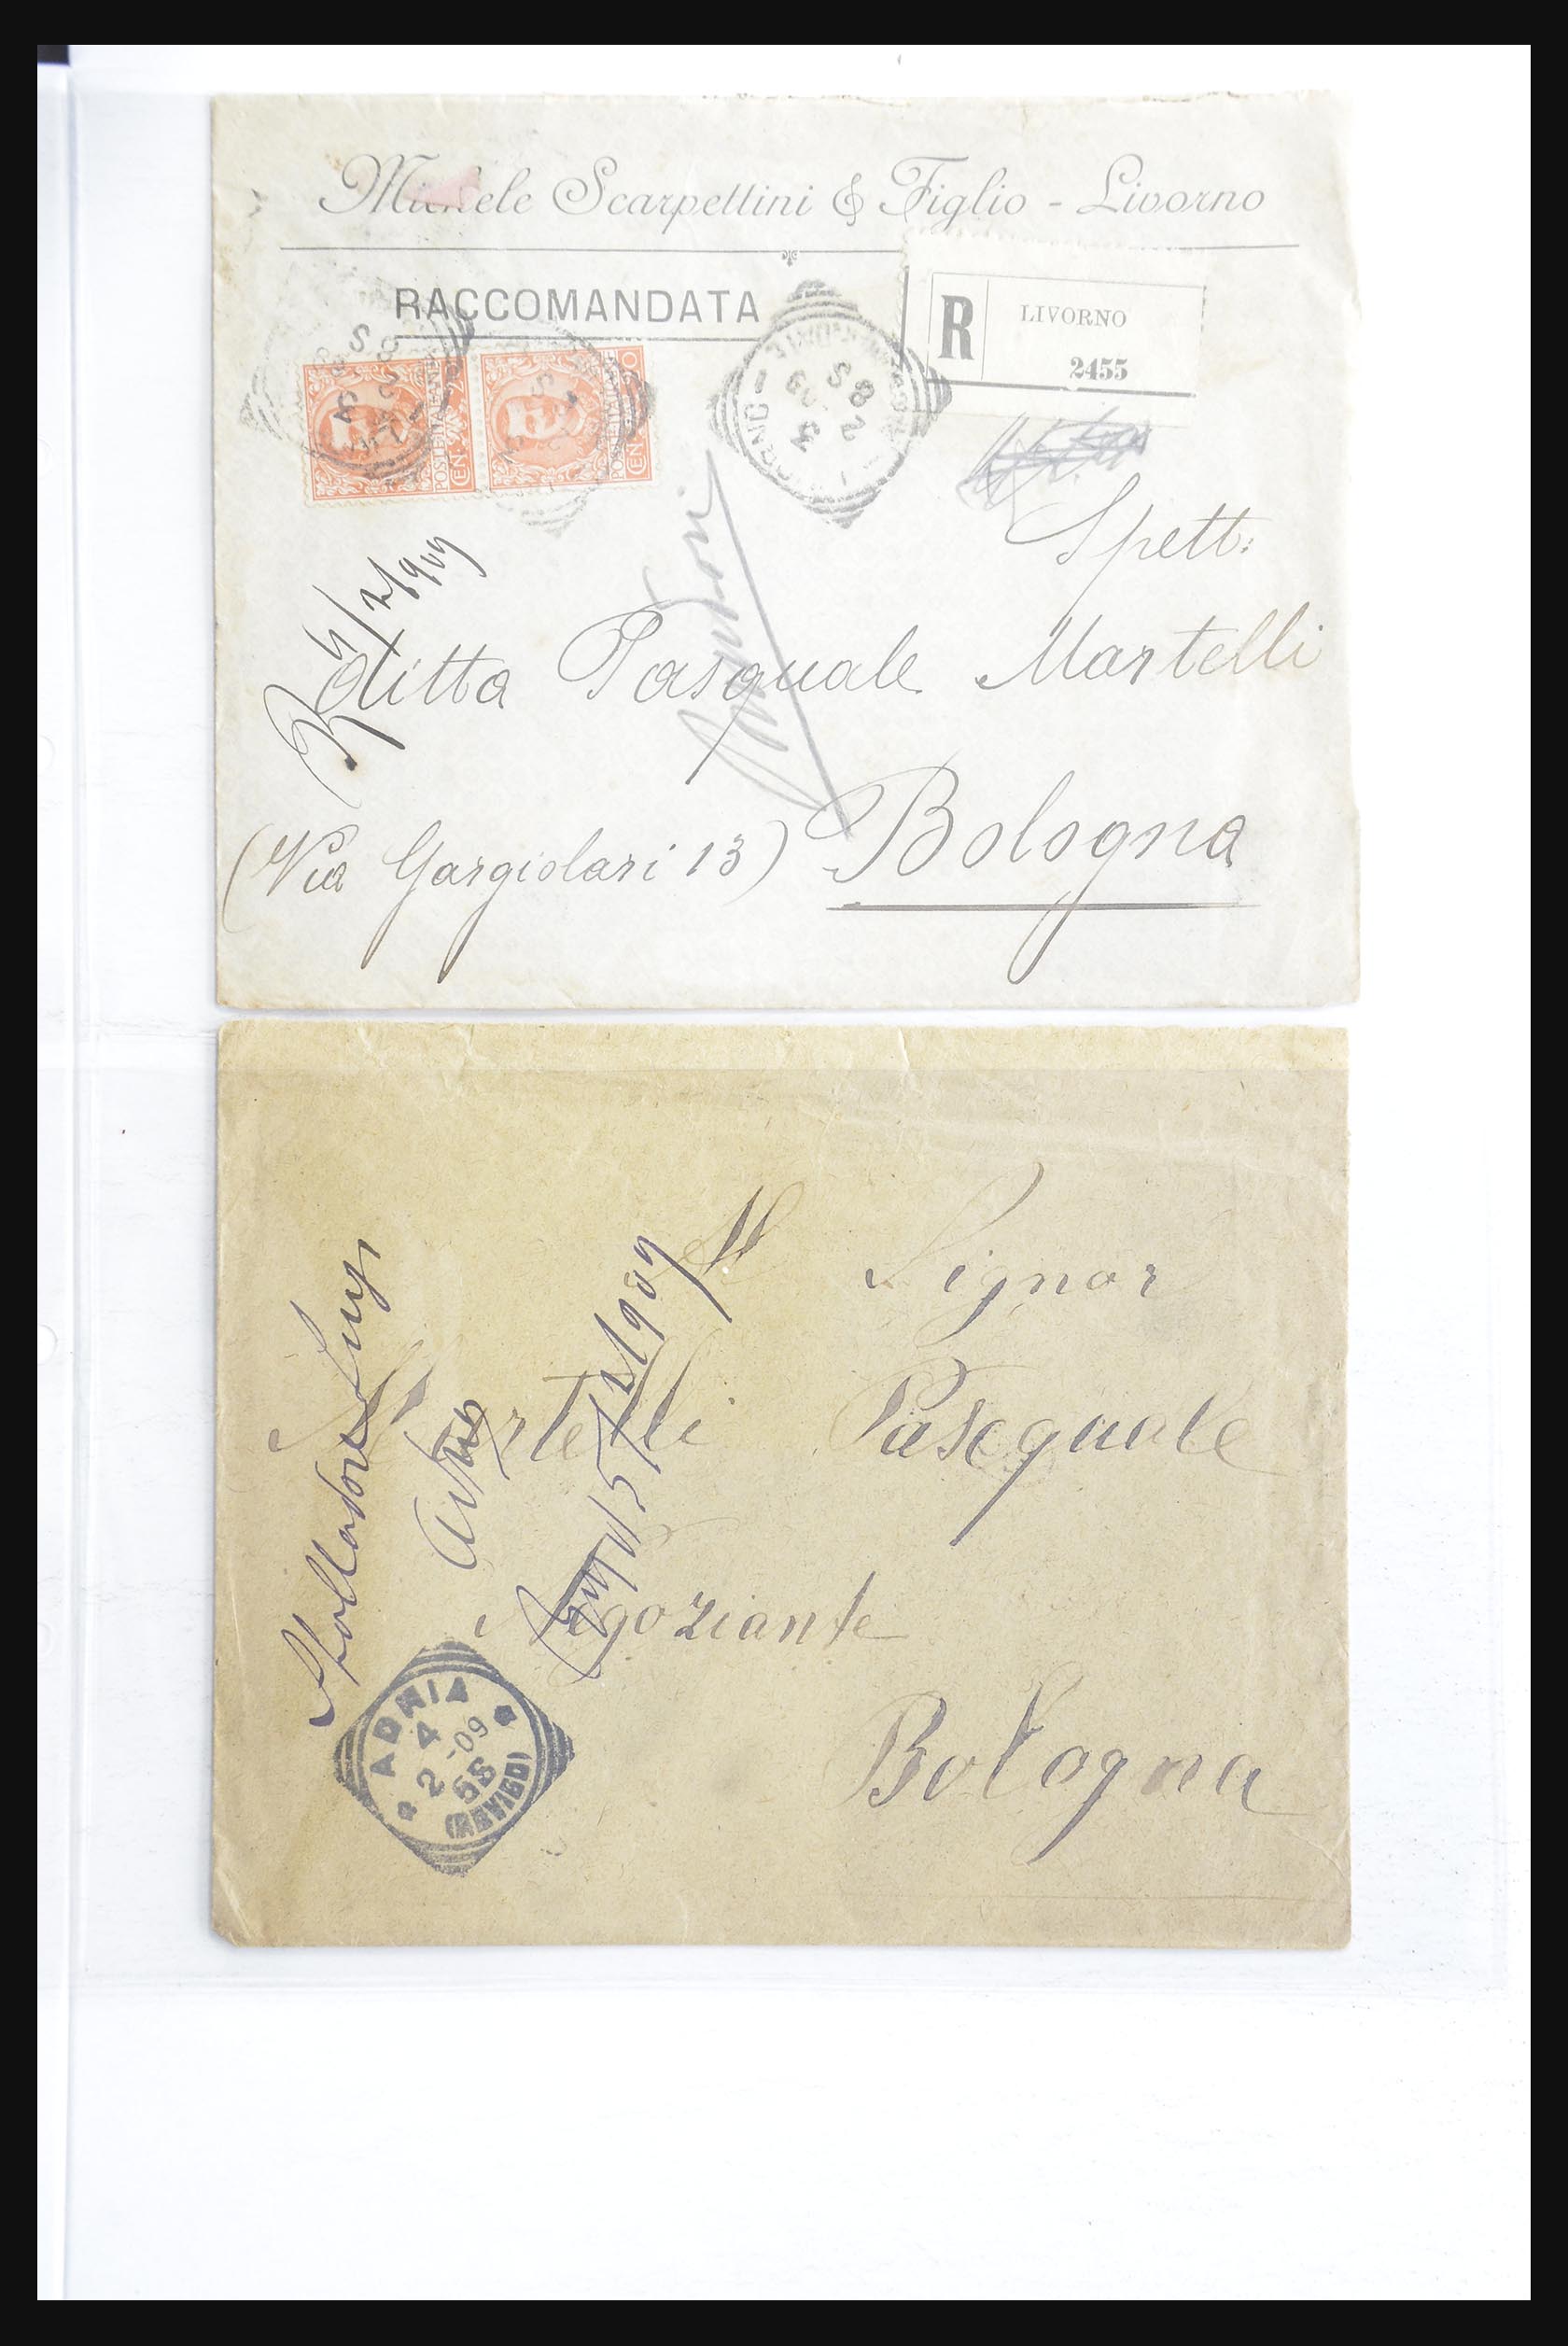 Michele Scarpettini & Figlio - Livorno
RACCOMANDATA
R LIVORNO
2455
POSTE ITALIANE
CEN. 20
POSTE ITALIANE
CEN. 20
LIVORNO
8 S
2 - 09
3
Spett:
ditta Pasquale Martelli
(Via Gargiolari 13) Bologna
R 4/2/909
Al Signor
Martelli Pasequale
Negoziante
Bologna
Spolladore Luigi
5/2/909
ADRIA
4
2 - 09
5S
(ROVIGO)